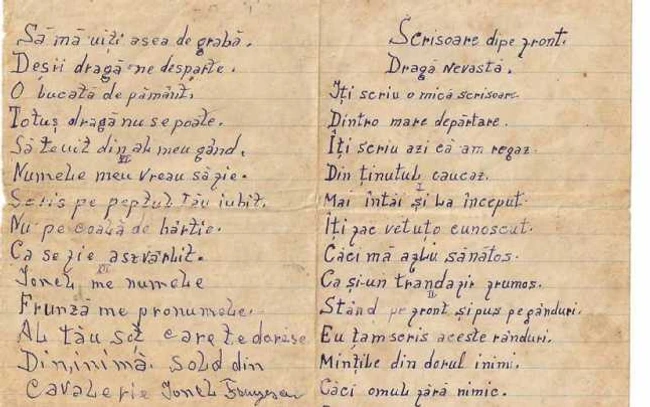 Să mă uiți așea de grabă.
Deșii dragă ne desparte.
O bucată de pământ.
Totuș dragă nu se poate.
Să te uit din al meu gând.
XI
Numele meu vreau să fie.
Scris pe peptul tău iubit.
Nu pe coală de hârtie.
Ca se fie asvârlit.
XII
Ionel me numele
Frunză me pronumele.
Al tău soț care te dorește
Din inimă. Sold din
Cavalerie Ionel
Scrisoare dipe front.
Dragă Nevastă.
Iți scriu o mică scrisoare.
Dintro mare depărtare.
Îți scriu azi că am regaz.
Din ținutul caucaz.
I
Mai întăi și la început.
Îti fac vetuto cunoscut.
Căci mă aflu sănătos.
Ca și-un trandafir frumos.
II
Stănd pe front și pus pe gănduri.
Eu țam scris aceste rănduri.
Mințile din dorul inimi.
Căci omul fără nimic.